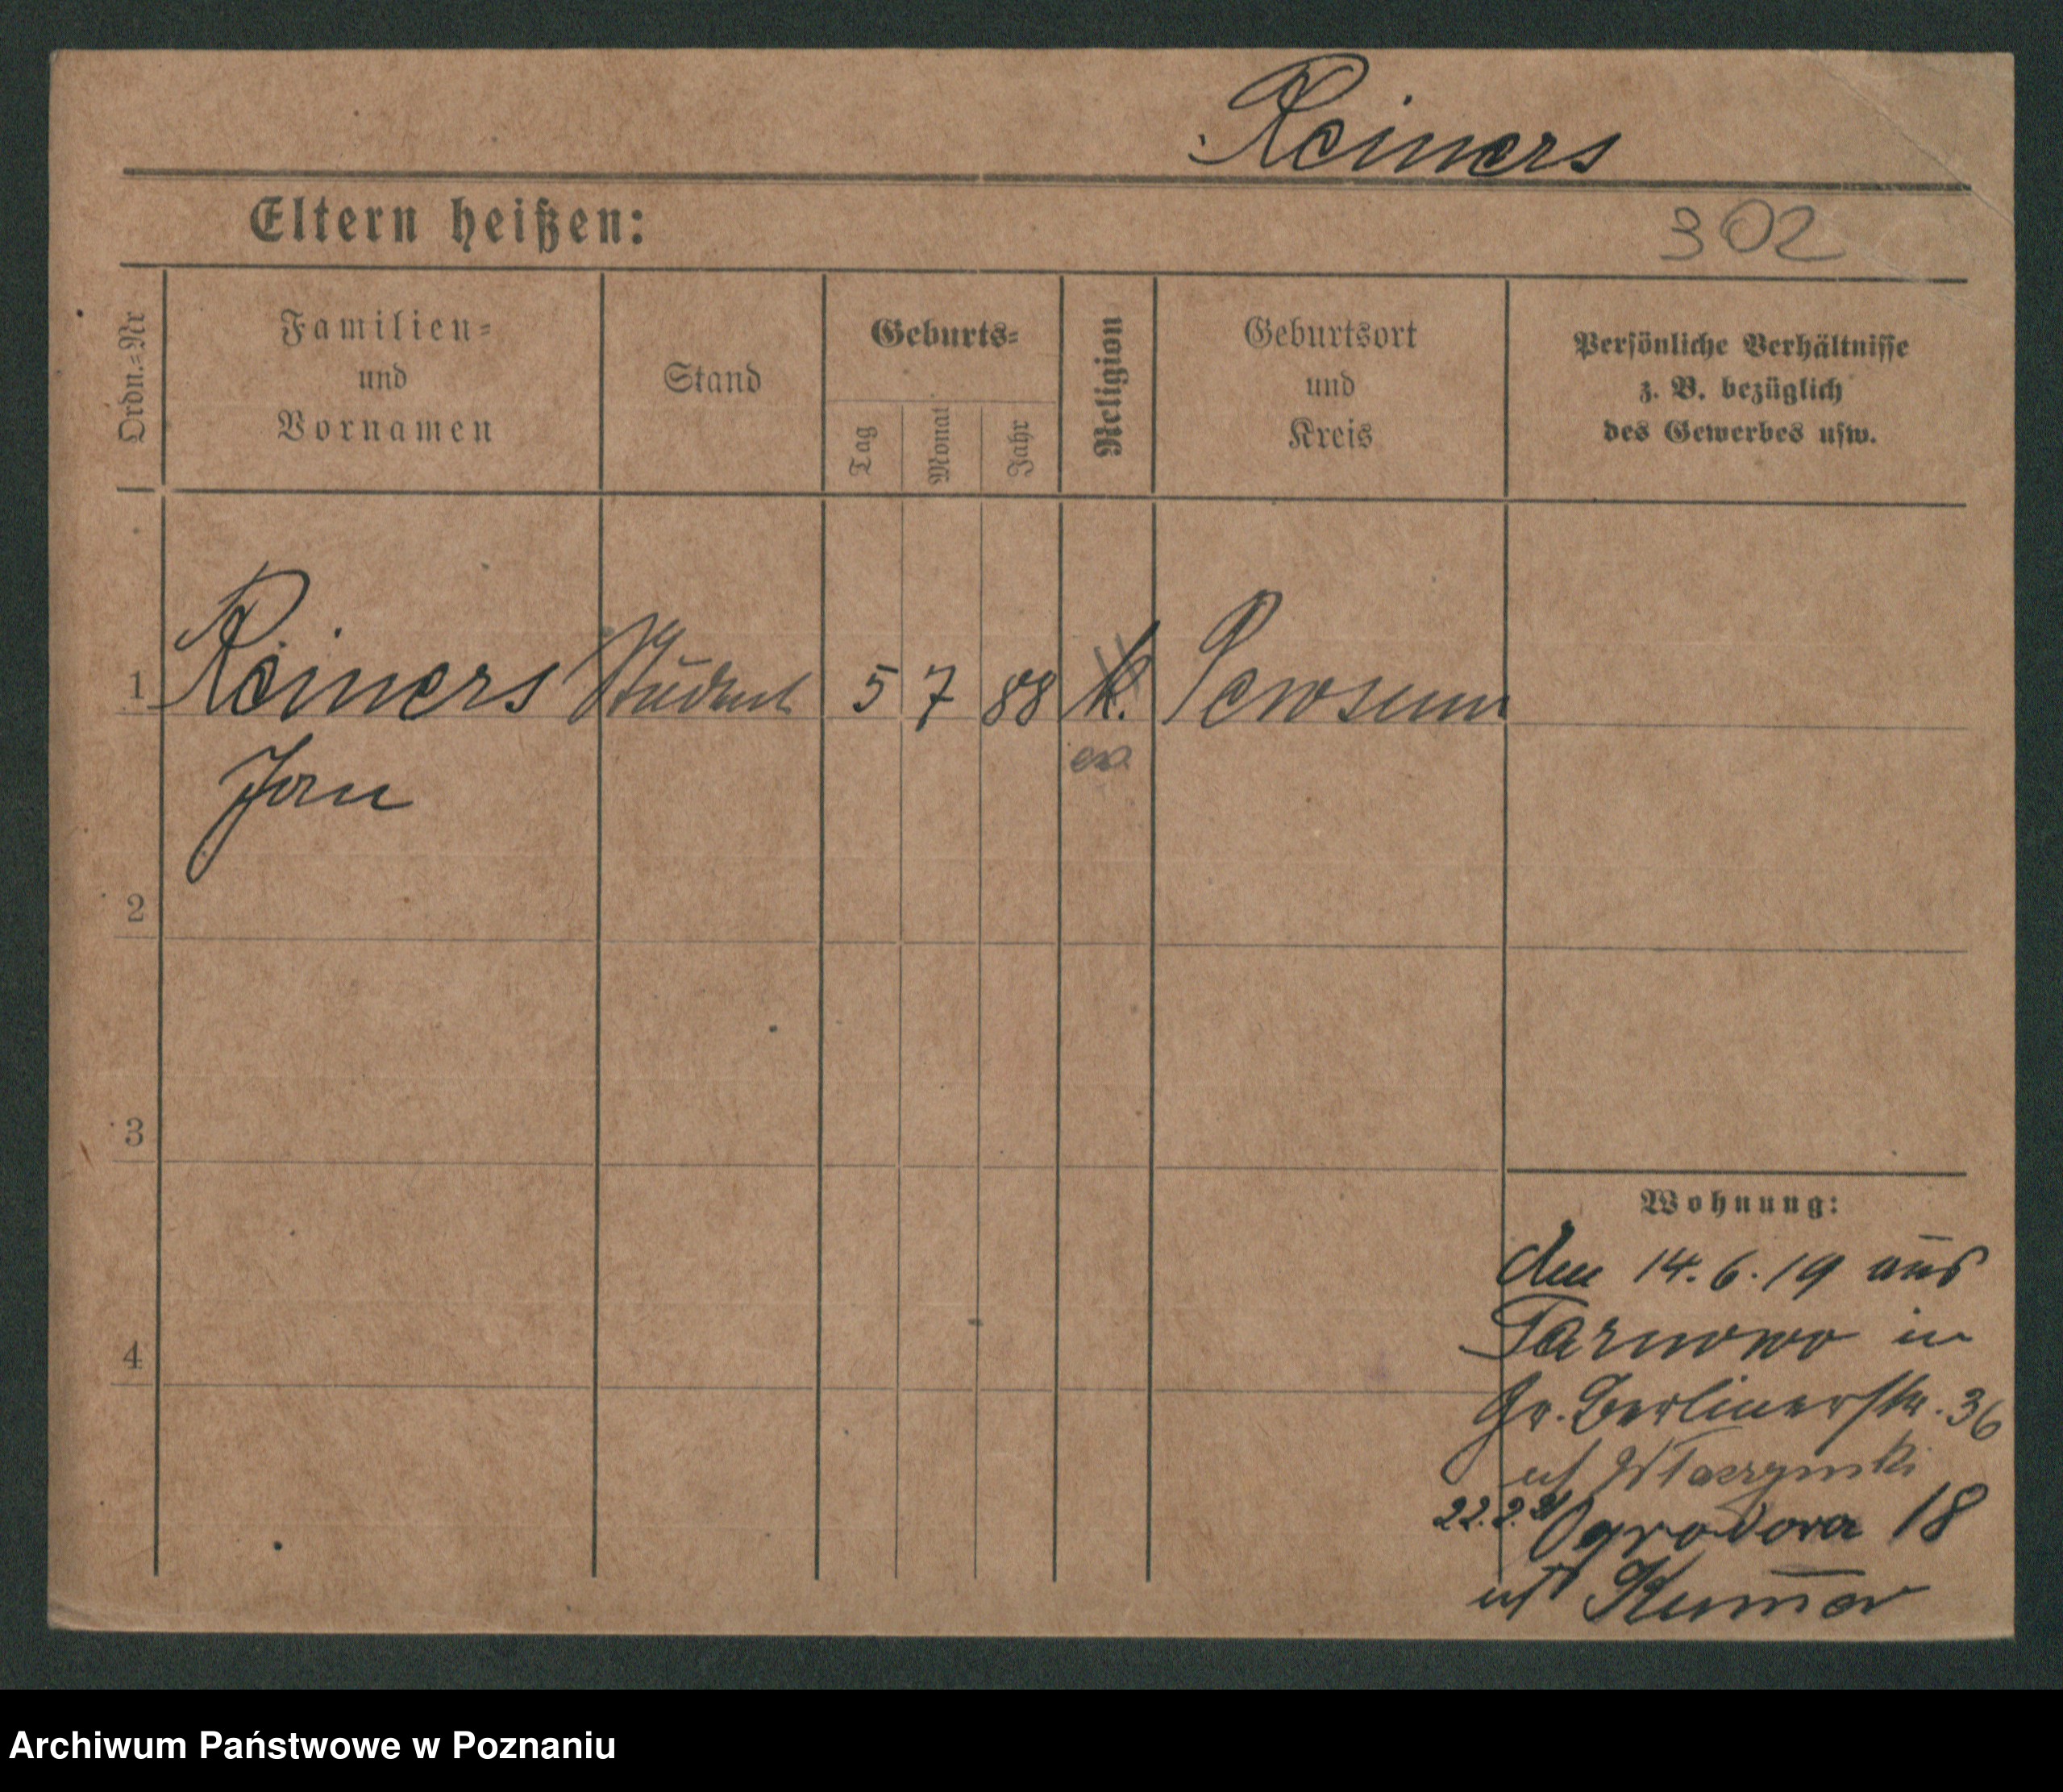 Reiners
Eltern heißen:
302
Ordn.=Nr
Familien=
und
Vornamen
Stand
Geburts=
Tag
Monat
Jahr
Religion
Geburtsort
und
Kreis
Persönliche Verhältnisse
z. B. bezüglich
des Gewerbes usw.
1 Reiners Student 5 7 88 k. Pewsum
ev.
Jan
2
3
4
Wohnung:
den 14.6.19 aus
Tarnowo in
Gr. Berlinerstr. 36
22.2.21 Ogrodova 18
Archiwum Państwowe w Poznaniu